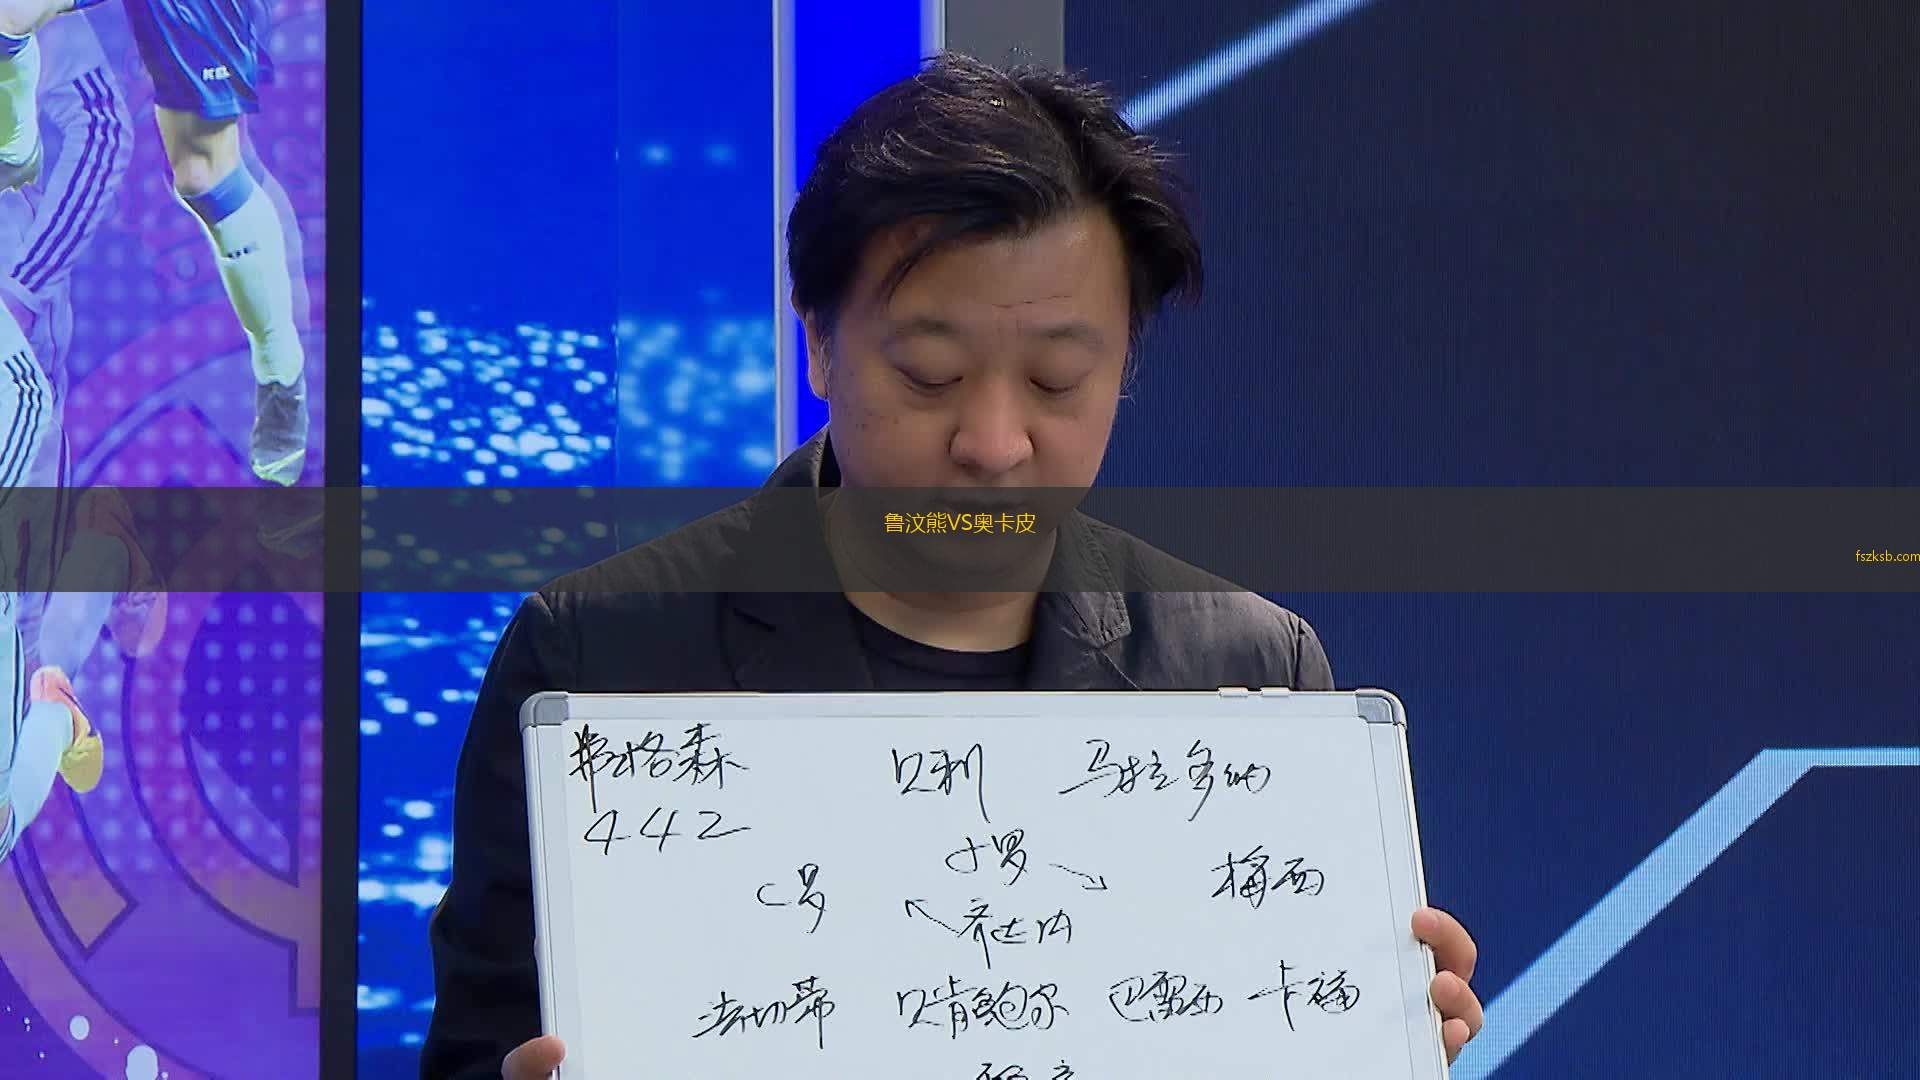 鲁汶熊VS奥卡皮
fszksb.com
弗格森 贝利 马拉多纳
442
小罗
C罗 梅西
齐达内
法切蒂 贝肯鲍尔 巴雷西 卡福